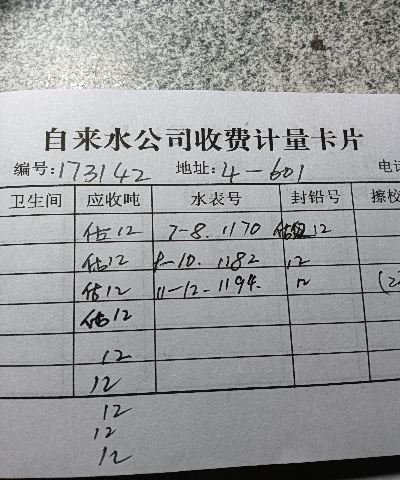 自来水公司收费计量卡片
编号:173142 地址:4-601 电话
卫生间 应收吨 水表号 封铅号 擦校
估12 7-8. 1170 12
估12 9-10. 1182 12
估12 11-12. 1194. 12 (2
估12
12
12
12
12
12